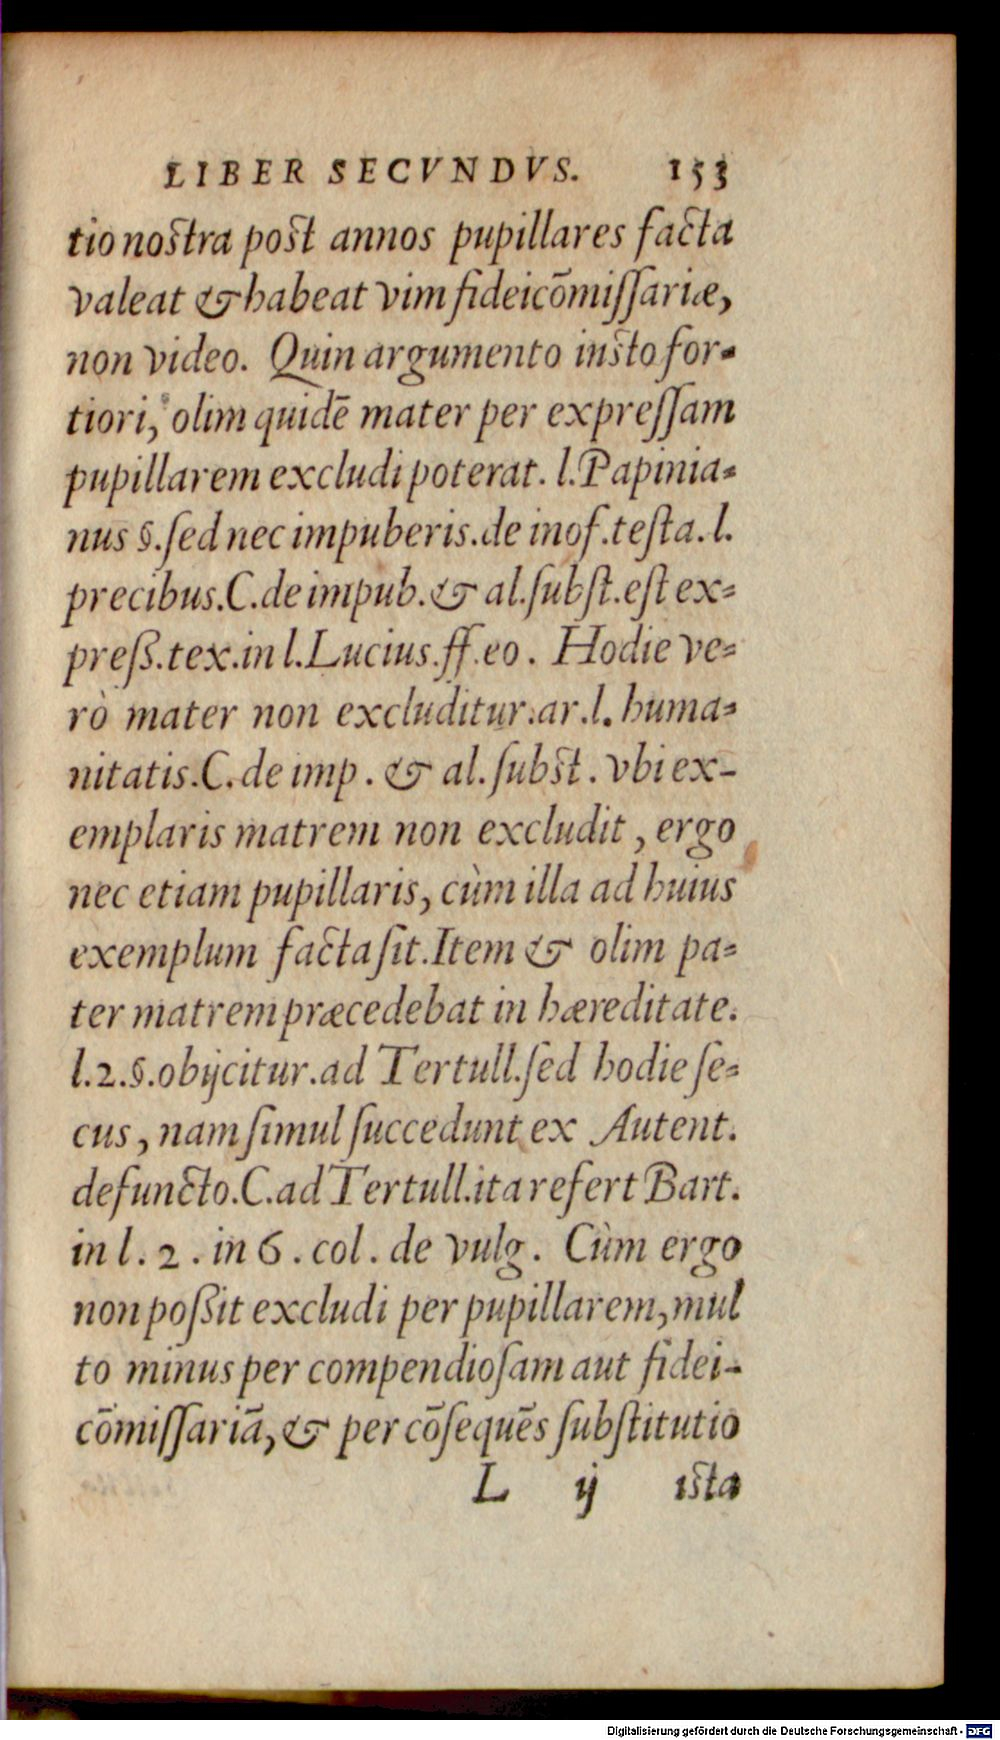 LIBER SECVNDVS. 153
tio nostra post annos pupillares facta
valeat & habeat vim fideicõmiſſariæ,
non video. Quin argumento insto for-
tiori, olim quidẽ mater per expreſſam
pupillarem excludi poterat. l. Papinia-
nus §. ſed nec impuberis. de inof. teſta. l.
precibus. C. de impub. & al. ſubſt. eſt ex-
preß. tex. in l. Lucius. ff. eo. Hodie ve-
rò mater non excluditur. ar. l. huma-
nitatis. C. de imp. & al. ſubst. vbi ex-
emplaris matrem non excludit, ergo
nec etiam pupillaris, cùm illa ad huius
exemplum facta ſit. Item & olim pa-
ter matrem præcedebat in hæreditate.
l. 2. §. obijcitur. ad Tertull. ſed hodie ſe-
cus, nam ſimul ſuccedunt ex Autent.
defuncto. C. ad Tertull. ita refert Bart.
in l. 2. in 6. col. de vulg. Cùm ergo
non poßit excludi per pupillarem, mul
to minus per compendioſam aut fidei-
cõmiſſariã, & per cõſequẽs ſubſtitutio
L ij ista
Digitalisierung gefördert durch die Deutsche Forschungsgemeinschaft - DFG